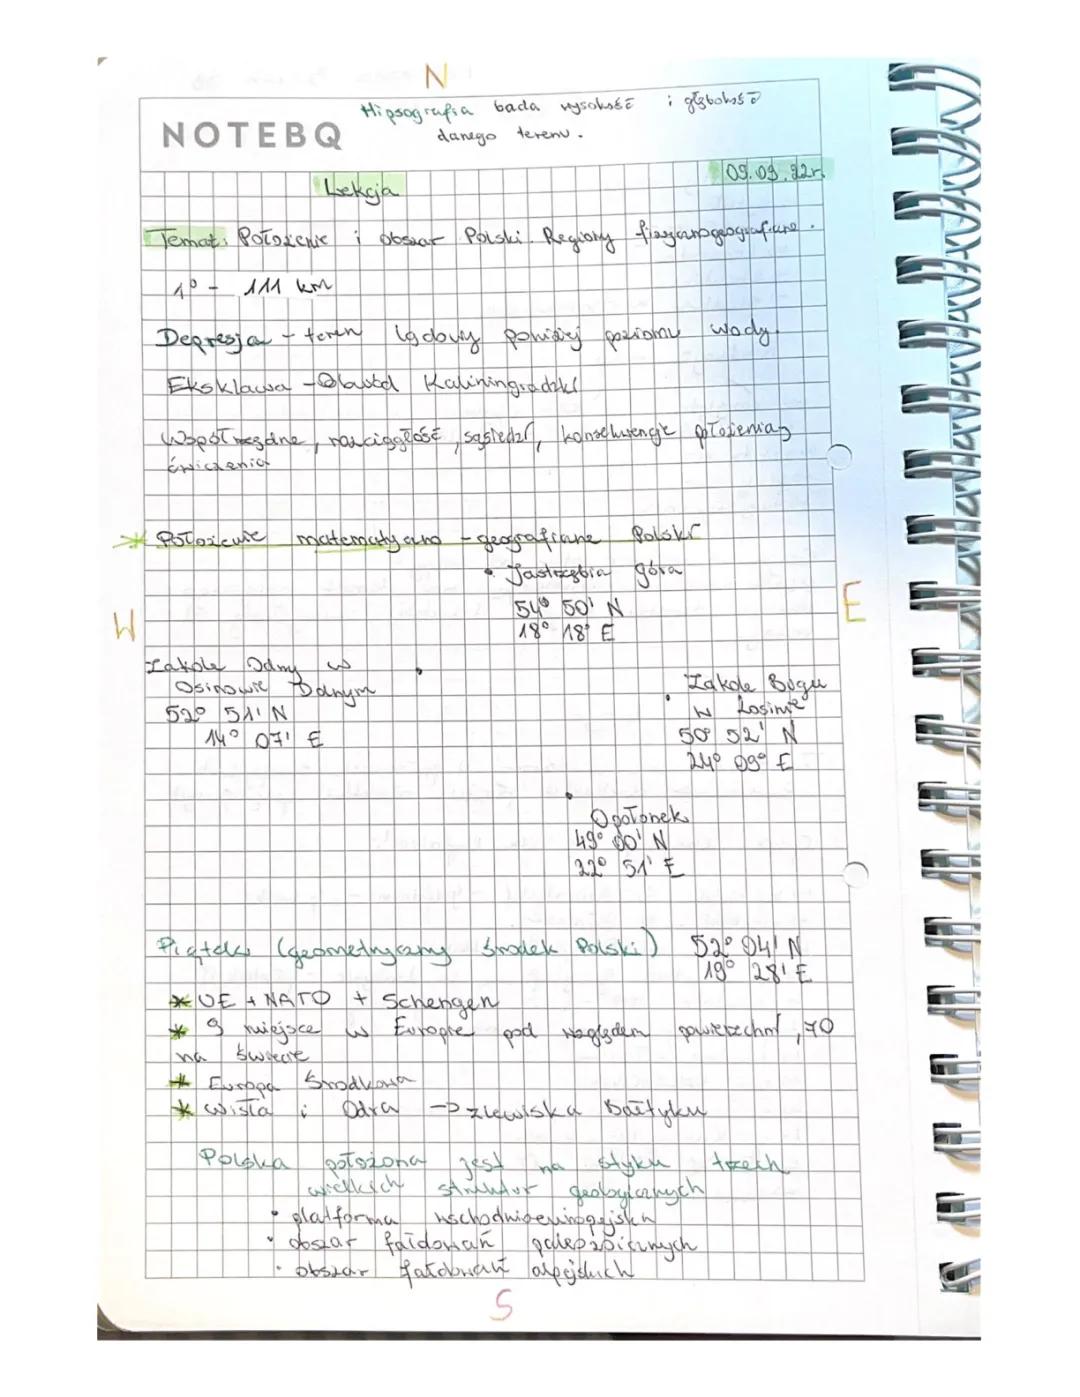 N
Hipsografia bada wysokość i głębokość
danego terenu.
NOTEBQ
09.09.22r.
Lekcja
Temat: Położenie i obszar Polski. Regiony fizycznogeograficzne.
1° - 111 km
Depresja - teren lądowy poniżej poziomu wody.
Eksklawa - Obwód Kaliningradzki
Współrzędne, rozciągłość, sąsiedzi, konsekwencje położenia,
ćwiczenia
* Położenie matematyczno - geograficzne Polski
• Jastrzębia góra
54° 50' N
18° 18' E
E
W
Zakole Odry w
Osinowie Dolnym
52° 51' N
14° 07' E
• Zakole Bugu
w Zosinie
50° 52' N
24° 09° E
Opołonek
49° 00' N
22° 51' E
Piątek (geometryczny środek Polski) 52° 04' N
19° 28' E
* UE + NATO + Schengen
* 9 miejsce w Europie pod względem powierzchni, 70
na świecie
* Europa Środkowa
* Wisła i Odra -> zlewiska Bałtyku
Polska położona jest na styku trzech
wielkich struktur geologicznych
• platforma wschodnioeuropejska
• obszar fałdowań paleozoicznych
• obszar fałdowań alpejskich
S